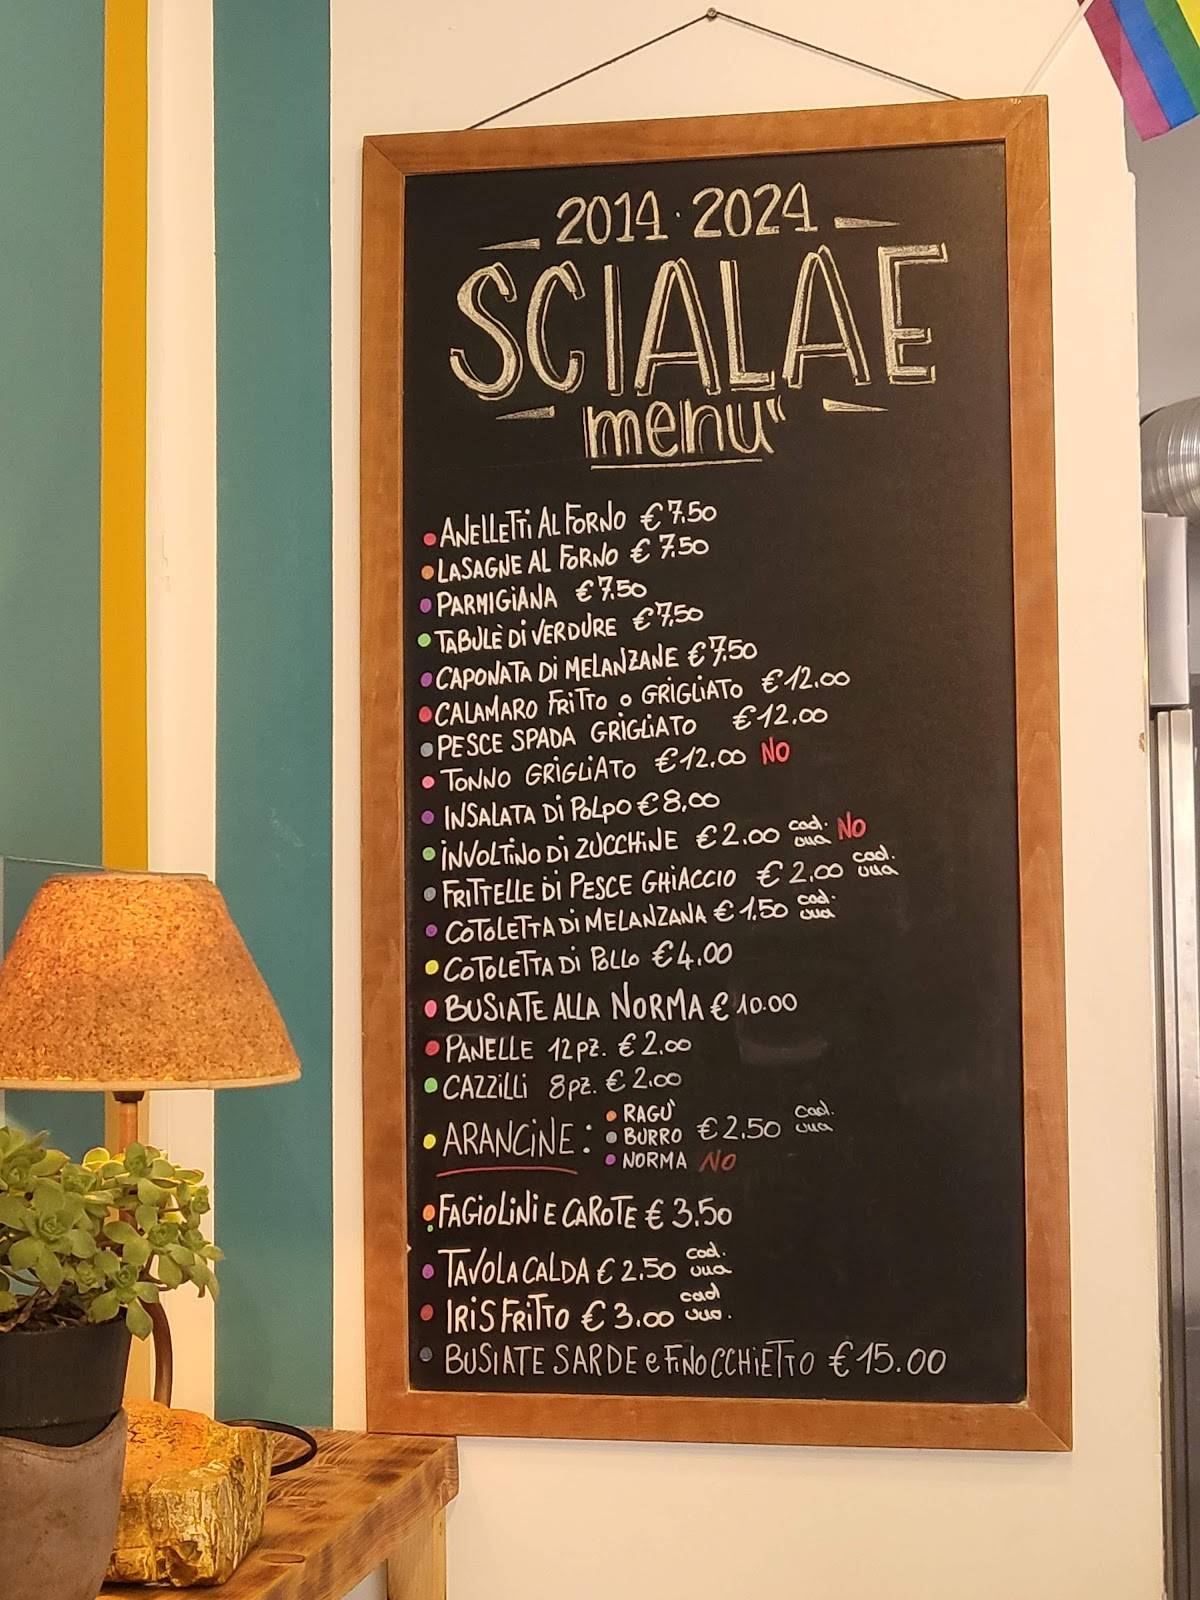 2014 · 2024
SCIALAE
menu"
ANELLETTI AL FORNO € 7.50
LASAGNE AL FORNO € 7.50
PARMIGIANA € 7.50
TABULÈ DI VERDURE € 7.50
CAPONATA DI MELANZANE € 7.50
CALAMARO FRITTO O GRIGLIATO € 12.00
PESCE SPADA GRIGLIATO € 12.00
TONNO GRIGLIATO € 12.00 NO
INSALATA DI POLPO € 8,00
INVOLTINO DI ZUCCHINE € 2.00 cad. una NO
FRITTELLE DI PESCE GHIACCIO € 2,00 cad. una
COTOLETTA DI MELANZANA € 1.50 cad. una
COTOLETTA DI POLLO € 4.00
BUSIATE ALLA NORMA € 10.00
PANELLE 12 PZ. € 2.00
CAZZILLI 8 PZ. € 2.00
ARANCINE :
RAGU'
BURRO € 2.50 cad. una
NORMA NO
FAGIOLINI E CAROTE € 3.50
TAVOLA CALDA € 2.50 cad. una
IRIS FRITTO € 3.00 cad uno.
BUSIATE SARDE e FINOCCHIETTO € 15.00